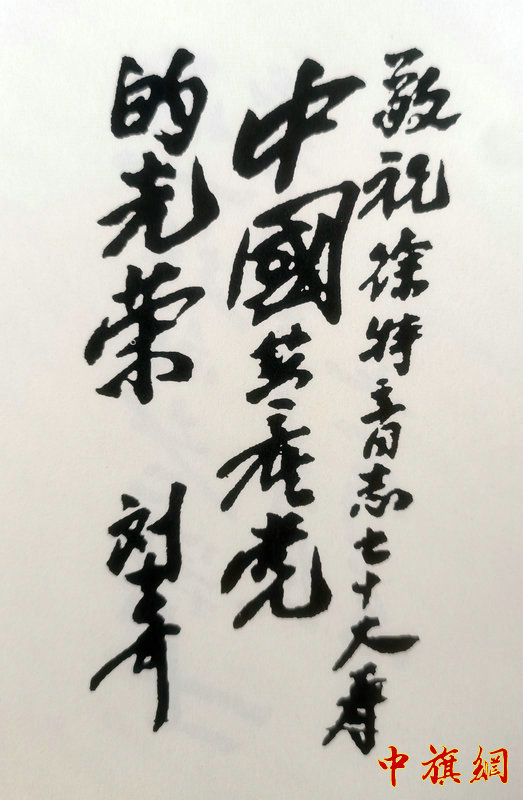 敬祝徐特立同志七十大寿
中國共産党
的光荣
刘少奇
中旗網